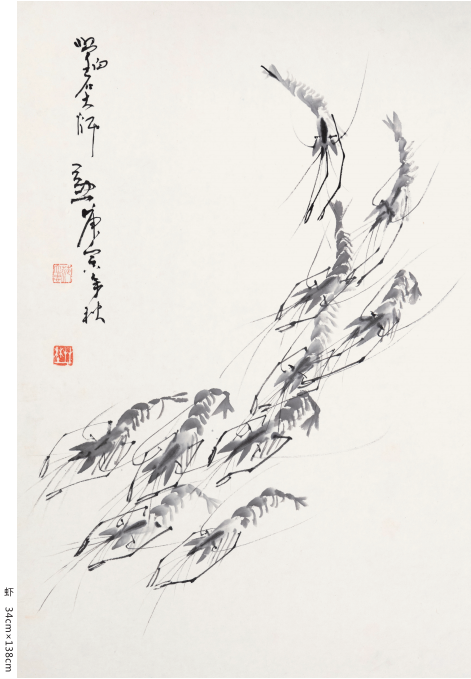 學白石大师
庚寅年秋
虾 34cm×138cm